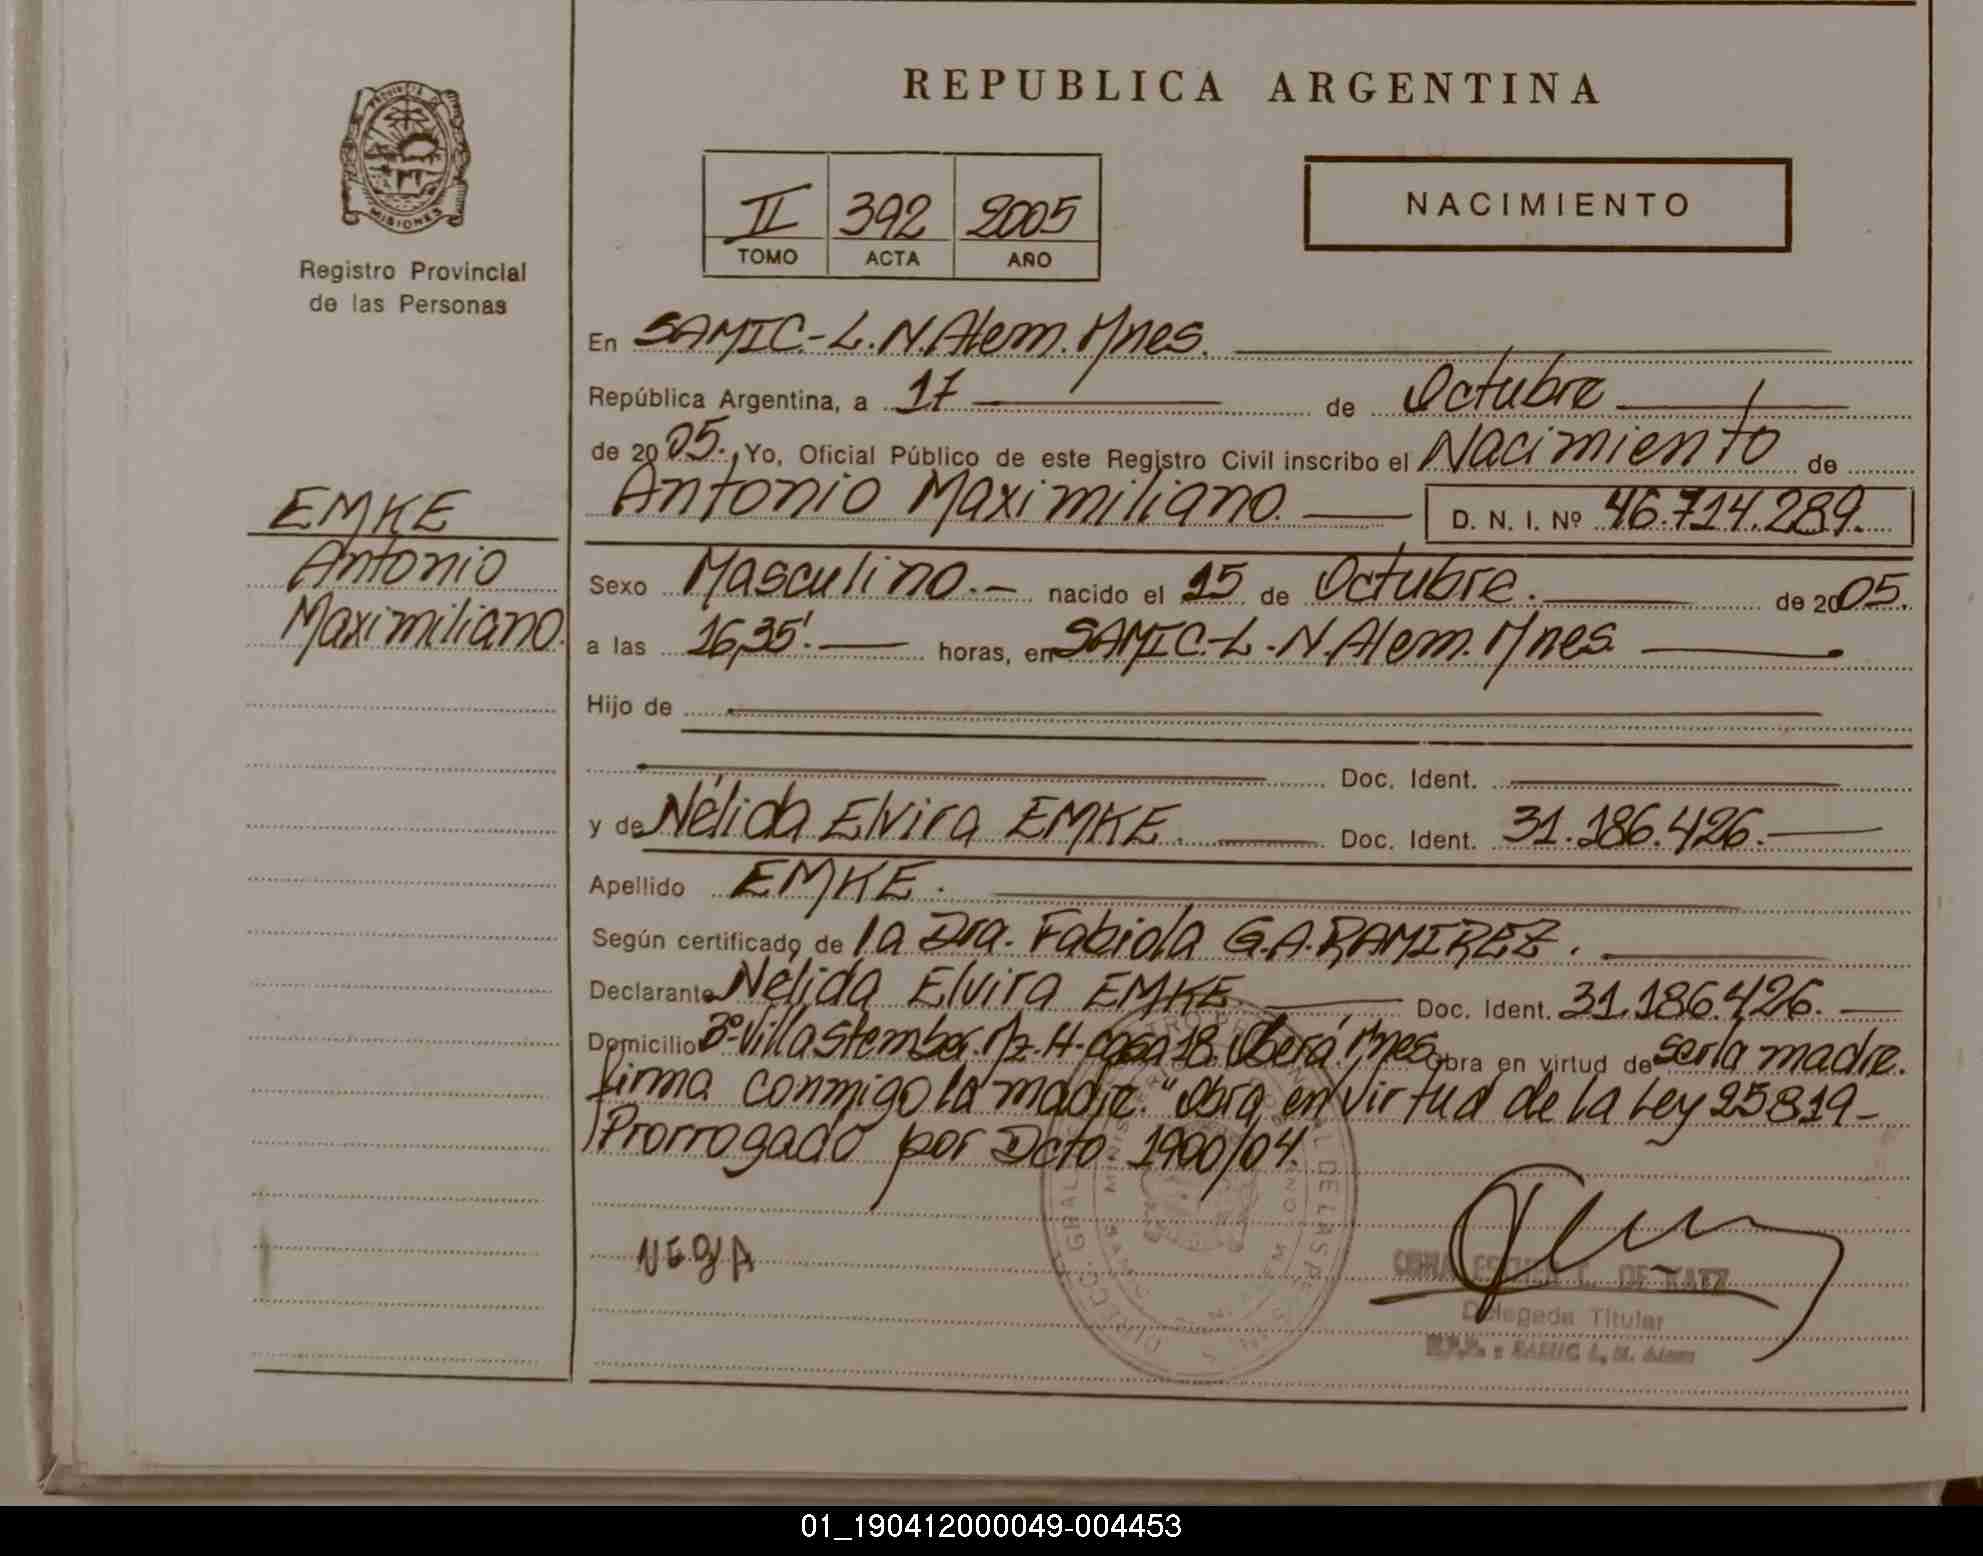 REPUBLICA ARGENTINA
PROVINCIA DE
MISIONES
Registro Provincial
de las Personas
II 392 2005
TOMO ACTA AÑO
NACIMIENTO
En SAMIC.-L.N.Alem.Mnes.
República Argentina, a 17 de Octubre
de 2005., Yo, Oficial Público de este Registro Civil inscribo el Nacimiento de
Antonio Maximiliano. D. N. I. Nº 46.714.289.
EMKE
Antonio
Maximiliano.
Sexo Masculino.- nacido el 15 de Octubre. de 2005.
a las 16,35'. horas, en SAMIC.-L.N.Alem.Mnes.
Hijo de
Doc. Ident.
y de Nélida Elvira EMKE. Doc. Ident. 31.186.426.
Apellido EMKE.
Según certificado de la Dra. Fabiola G.A.RAMIREZ.
Declarante Nélida Elvira EMKE. Doc. Ident. 31.186.426.
Domicilio Bº-Villa Stemberg. Mz. H- casa 18. Oberá. Mnes. Obra en virtud de ser la madre.
firma conmigo la madre. "Obra en virtud de la Ley 25819-
Prorrogado por Dcto. 1900/04.
DE KATZ
Delegada Titular
L. N. Alem
01_190412000049-004453